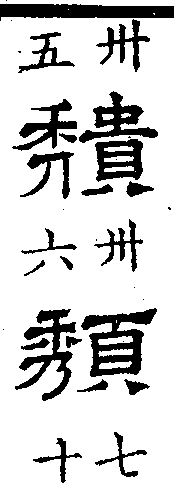 卅五
穨
卅六
頹
七十